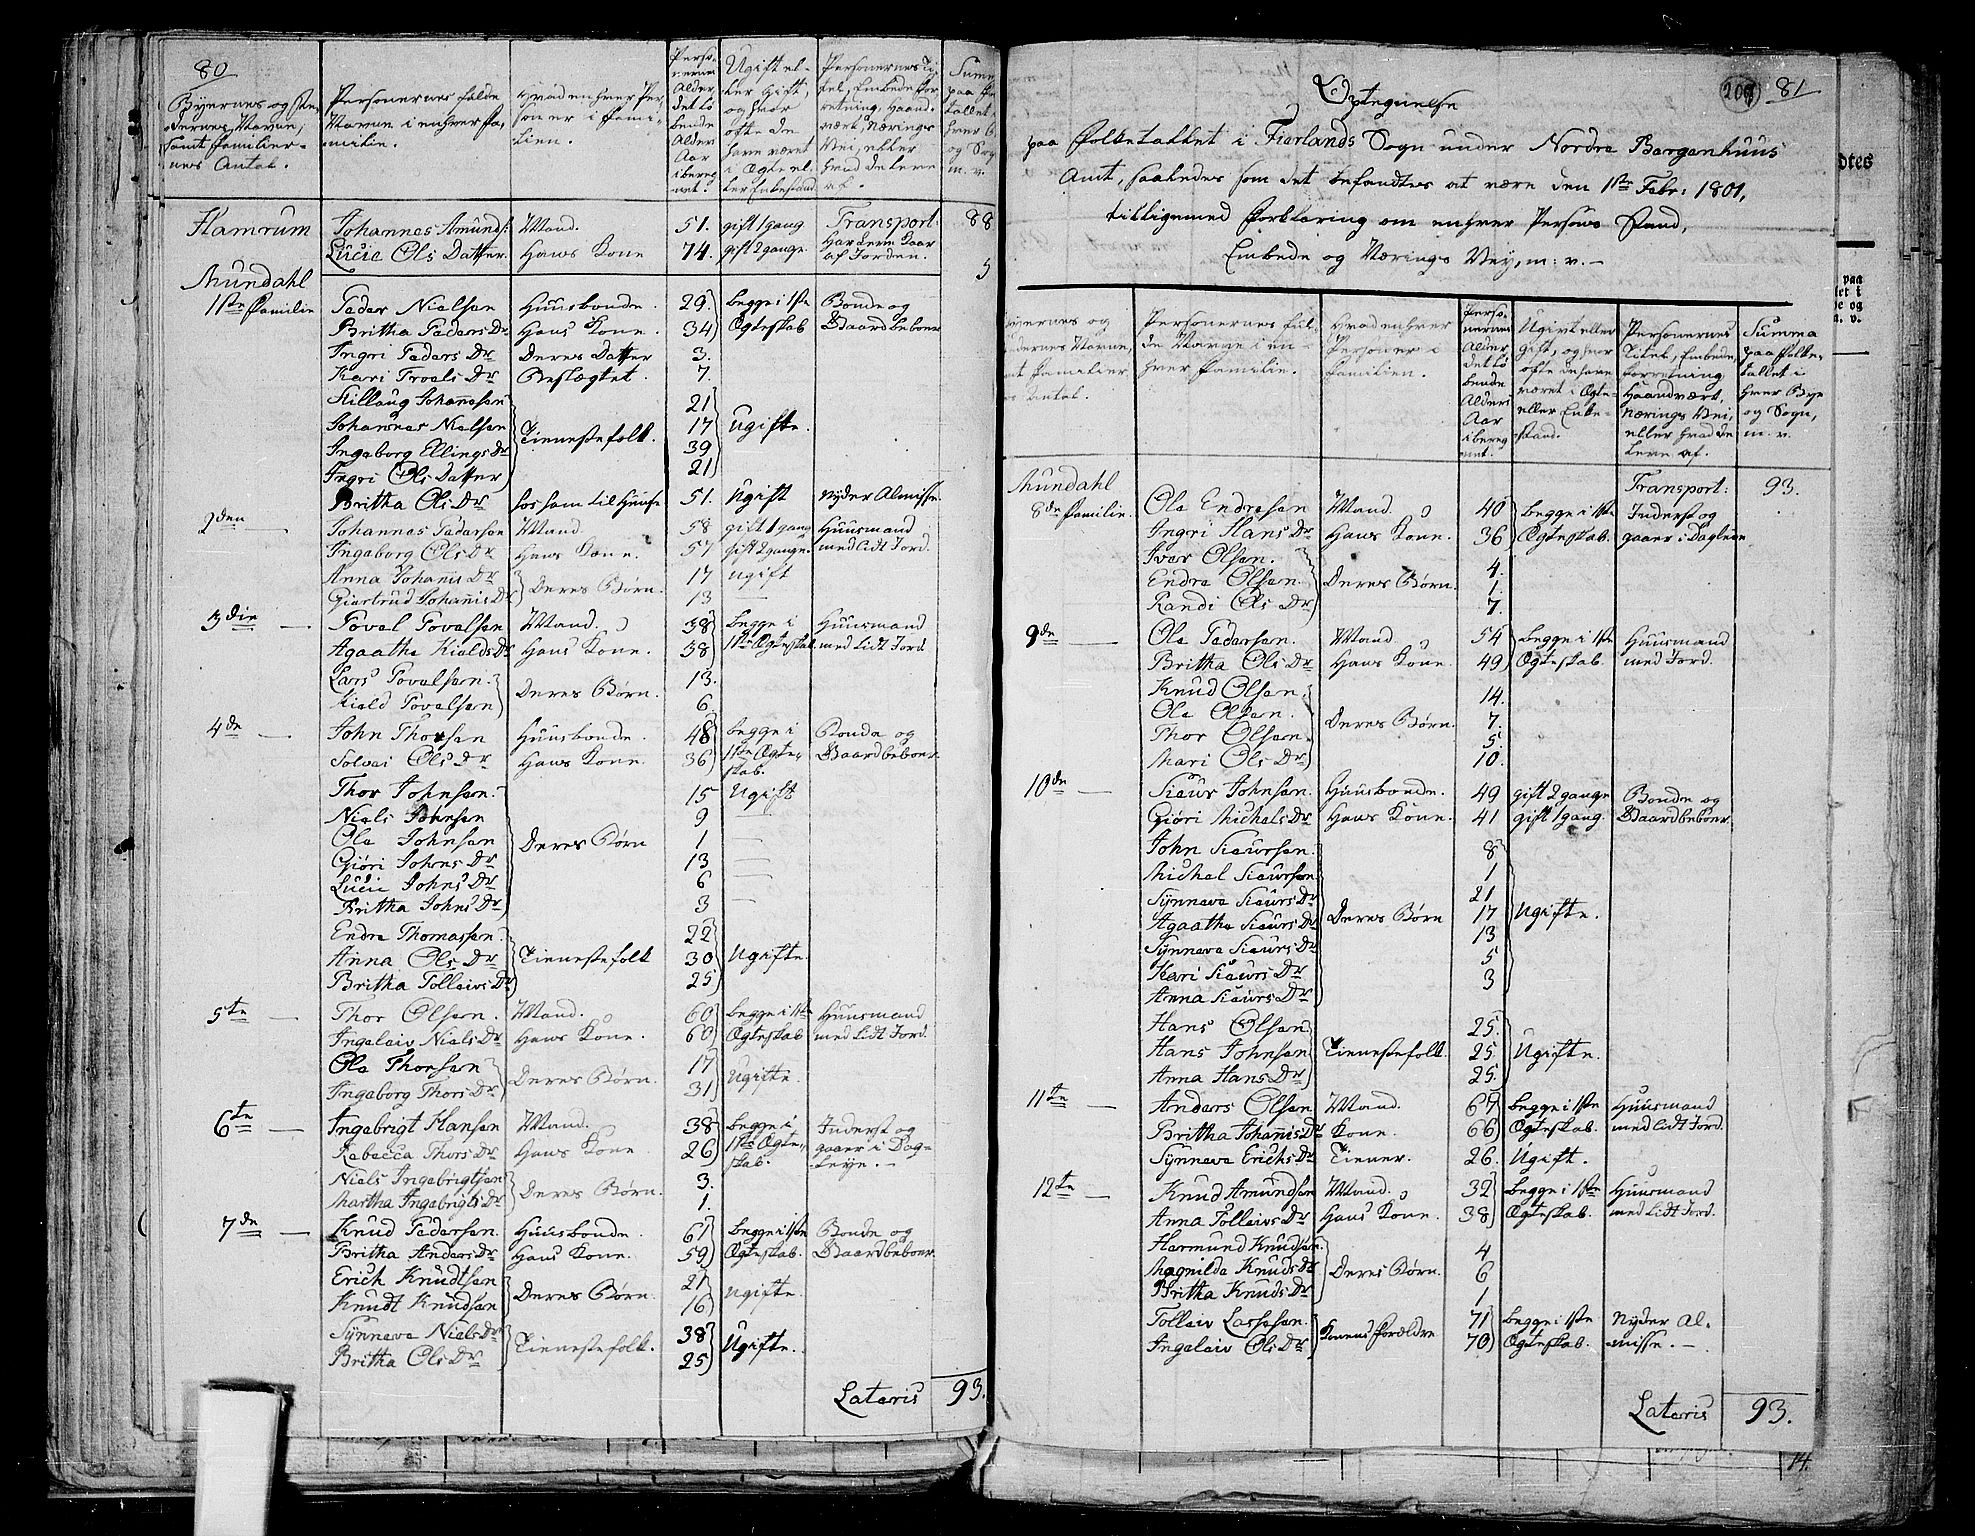 80
Byernes og Ste-
dernes Navne,
samt Familier-
nes Antal.
Personernes fulde
Navne i enhver Fa-
milie.
Hvad enhver Per-
son er i Fami-
lien.
Perso-
nernes
Alder
det lø-
bende
Alders
Aar
ibereg-
net.
Ugift el-
ler Gift,
og hvor
ofte de
have været
i Ægte el-
ler Enkestand
Personernes Ti-
tel, Embede For-
retning, Haand-
værk, Nærings
Vei, eller
hvad de leve
af.
Hamrum Johannes Amunds: Mand. 51. gift 1 gang Transport: 88
Lucie Ols Datter. Hans Kone 74. gift 2 gange
af Jorden. 5
Mundahl
1ste Familie Peder Nielsen Huusbonde. 29. begge i 1ste Bonde og
Britha Peders Dr Hans Kone. 34 Ægteskab Gaardbeboer
Ingri Peders Dr Deres Datter 3.
Kari Troels Dr Beslægtet. 7.
Hillaug Johannesen 21
Johannes Nielsen Tienestefolk. 17 Ugifte.
Ingeborg Ellings Dr 39
Ingri Ols Datter 21
Britha Ols Dr Los som til Huuse 51. Ugift Nyder Almisse.
2den Johannes Pedersen Mand 58 gift 1 gang Huusmand
Ingeborg Ols Dr Hans Kone. 57 gift 2 gange. med lidt Jord.
Anna Johannis Dr Deres Børn. 17 ugift
Giertrud Johannis Dr 13
3die Povel Povelsen Mand. 38 begge i Huusmand
Agaathe Kields Dr Hans Kone. 38 1ste Ægteskab med lidt Jord
Lars Povelsen. Deres Børn. 13.
Kield Povelsen 6.
4de John Thorsen Huusbonde. 48 begge i Bonde og
Solvei Ols Dr Hans Kone. 36 1ste Ægte- Gaardbeboer
skab.
Thor Johnsen. 15 Ugift
Niels Johnsen 9
Ole Johnsen Deres Børn 1
Giøri Johns Dr 13
Lucie Johns Dr 6
Britha Johns Dr 3
Endre Thomassen. 22
Anna Ols Dr Tienestefolk 30 Ugifte
Britha Tolleivs Dr 25
5te Thor Olsen. Mand. 60 begge i 1ste Huusmand
Ingeleiv Niels Dr Hans Kone. 60 Ægteskab med lidt Jord.
Ole Thorsen Deres Børn. 17 Ugifte.
Ingeborg Thors Dr 31
6te Ingebrigt Hansen Mand. 38 begge i Inderst og
Rebecca Thors Dr Hans Kone 26 1ste Ægte- gaaer i Dag-
skab. leye.
Niels Ingebrigtsen Deres Børn. 3.
Martha Ingebrigts Dr 1.
7de Knud Pedersen Huusbonde. 67 begge i 1ste Bonde og
Britha Anders Dr Hans Kone. 59 Ægteskab. Gaardbeboer
Erich Knudtsen Deres Børn. 21 ugifte.
Knudt Knudsen 16
Synneve Niels Dr Tienestefolk. 38 Ugifte.
Britha Ols Dr 25
Lateris 93.
209 81
Optegnelse
paa Folketallet i Fierlands Sogn under Nordre Bergenhuus
Amt, saaledes som det befandtes at være den 1ste Febr: 1801,
tilligemed Forklaring om enhver Persons Stand,
Embede og Nærings Vey, m: v. –
Byernes og
Stedernes Navne,
samt Familier
nes Antal.
Personernes ful-
de Navne i en-
hver Familie.
Hvad enhver
Person er i
Familien.
Perso-
nernes
Alder
det lø-
bende
Alders
Aar
ibereg-
net.
Ugivt eller
gift, og hvor
ofte de have
været i Ægte
eller Enke-
stand.
Personernes
Titel, Embede,
Forretning
Haandværk,
Nærings Vei,
eller hvad de
leve af.
Summa
paa Folke-
tallet i
hver Bye
og Sogn,
m. v.
Mundahl Transport: 93.
8de Familie. Ole Endresen Mand. 40 begge i 1ste Inderst og
Ingri Hans Dr Hans Kone. 36 Ægteskab. gaaer i Dagleie
Iver Olsen. 4.
Endre Olsen. Deres Børn. 1.
Randi Ols Dr 7.
9de Ole Pedersen. Mand. 54 begge i 1ste Huusmand
Britha Ols Dr Hans Kone. 49 Ægteskab. med Jord.
Knud Olsen. 14.
Ole Olsen. Deres Børn. 7.
Thor Olsen. 5.
Mari Ols Dr 10.
10de Siur Johnsen. Huusbonde. 49 gift 2 gange Bonde og
Giøri Michels Dr Hans Kone. 41 gift 1 gang. Gaardbeboer
John Siursen. 8
Michel Siursen 1
Synneve Siurs Dr 21
Agaathe Siurs Dr Deres Børn 17 Ugifte.
Synneva Siurs Dr 13
Kari Siurs Dr 5
Anna Siurs Dr 3
Hans Olsen 25.
Hans Johnsen Tienestefolk. 25. Ugifte.
Anna Hans Dr 25.
11te Anders Olsen Mand. 67 begge i 1ste Huusmand
Britha Johannis Dr Kone. 66 Ægteskab. med lidt Jord.
Synneve Erichs Dr Tiener. 26. Ugift.
12te Knud Amundsen Mand. 32 begge i 1ste Huusmand
Anna Tolleivs Dr Hans Kone. 38 Ægteskab. med lidt Jord.
Hermund Knudsen. 4
Magnilde Knuds Dr Deres Børn. 6
Britha Knuds Dr 1
Tolleiv Lassesen. Konens Forældre 71 begge i 1ste Nyder Al-
Ingeleiv Ols Dr 70 Ægteskab. misse. –
Lateris 93.
14.